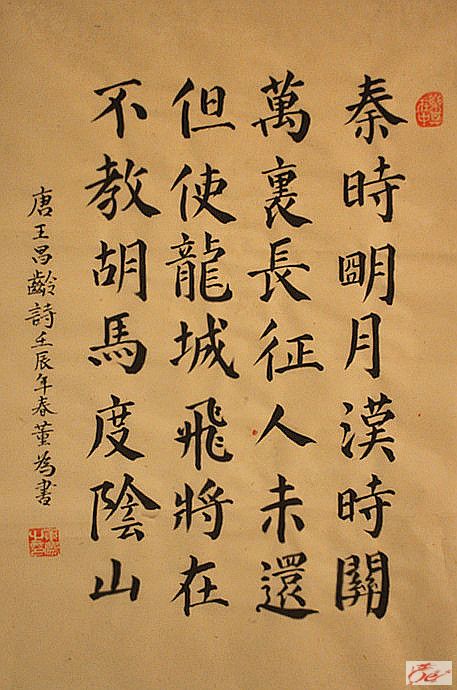 秦時朙月漢時關
萬裏長征人未還
但使龍城飛將在
不教胡馬度陰山
唐王昌齡詩壬辰年春董為書